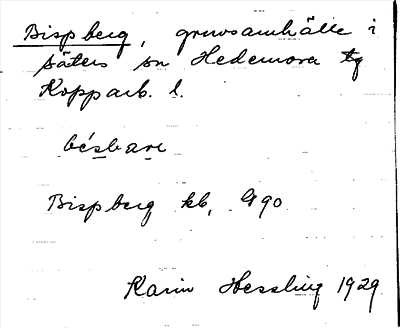 Bispberg, gruvsamhälle i
Säters sn Hedemora tg
Kopparb. l.
bésbare
Bispberg kb, G 90
Karin Hessling 1929